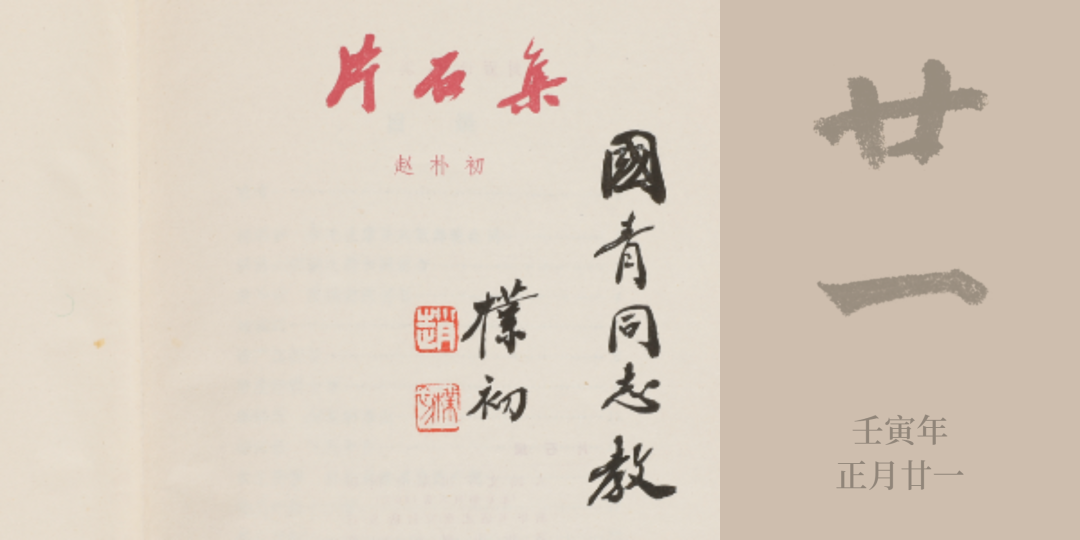 片石集
赵朴初
國青同志教
樸初
趙
樸初
廿一
壬寅年
正月廿一